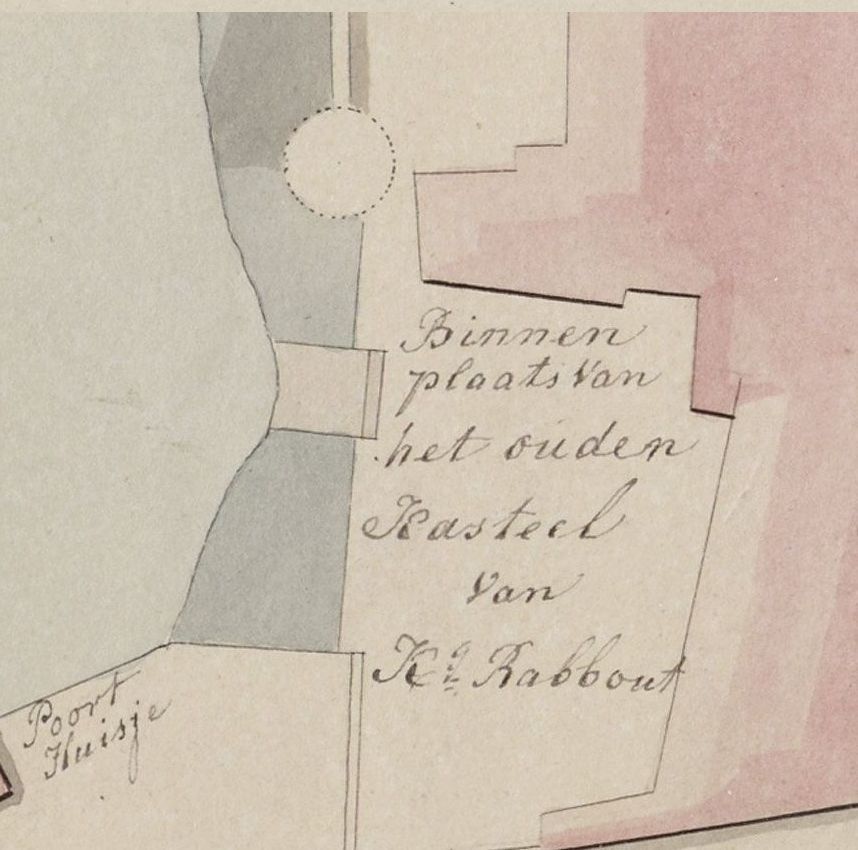 Binnen
plaats Van
het ouden
Kasteel
Van
Kg Rabbout
Poort
Huisje